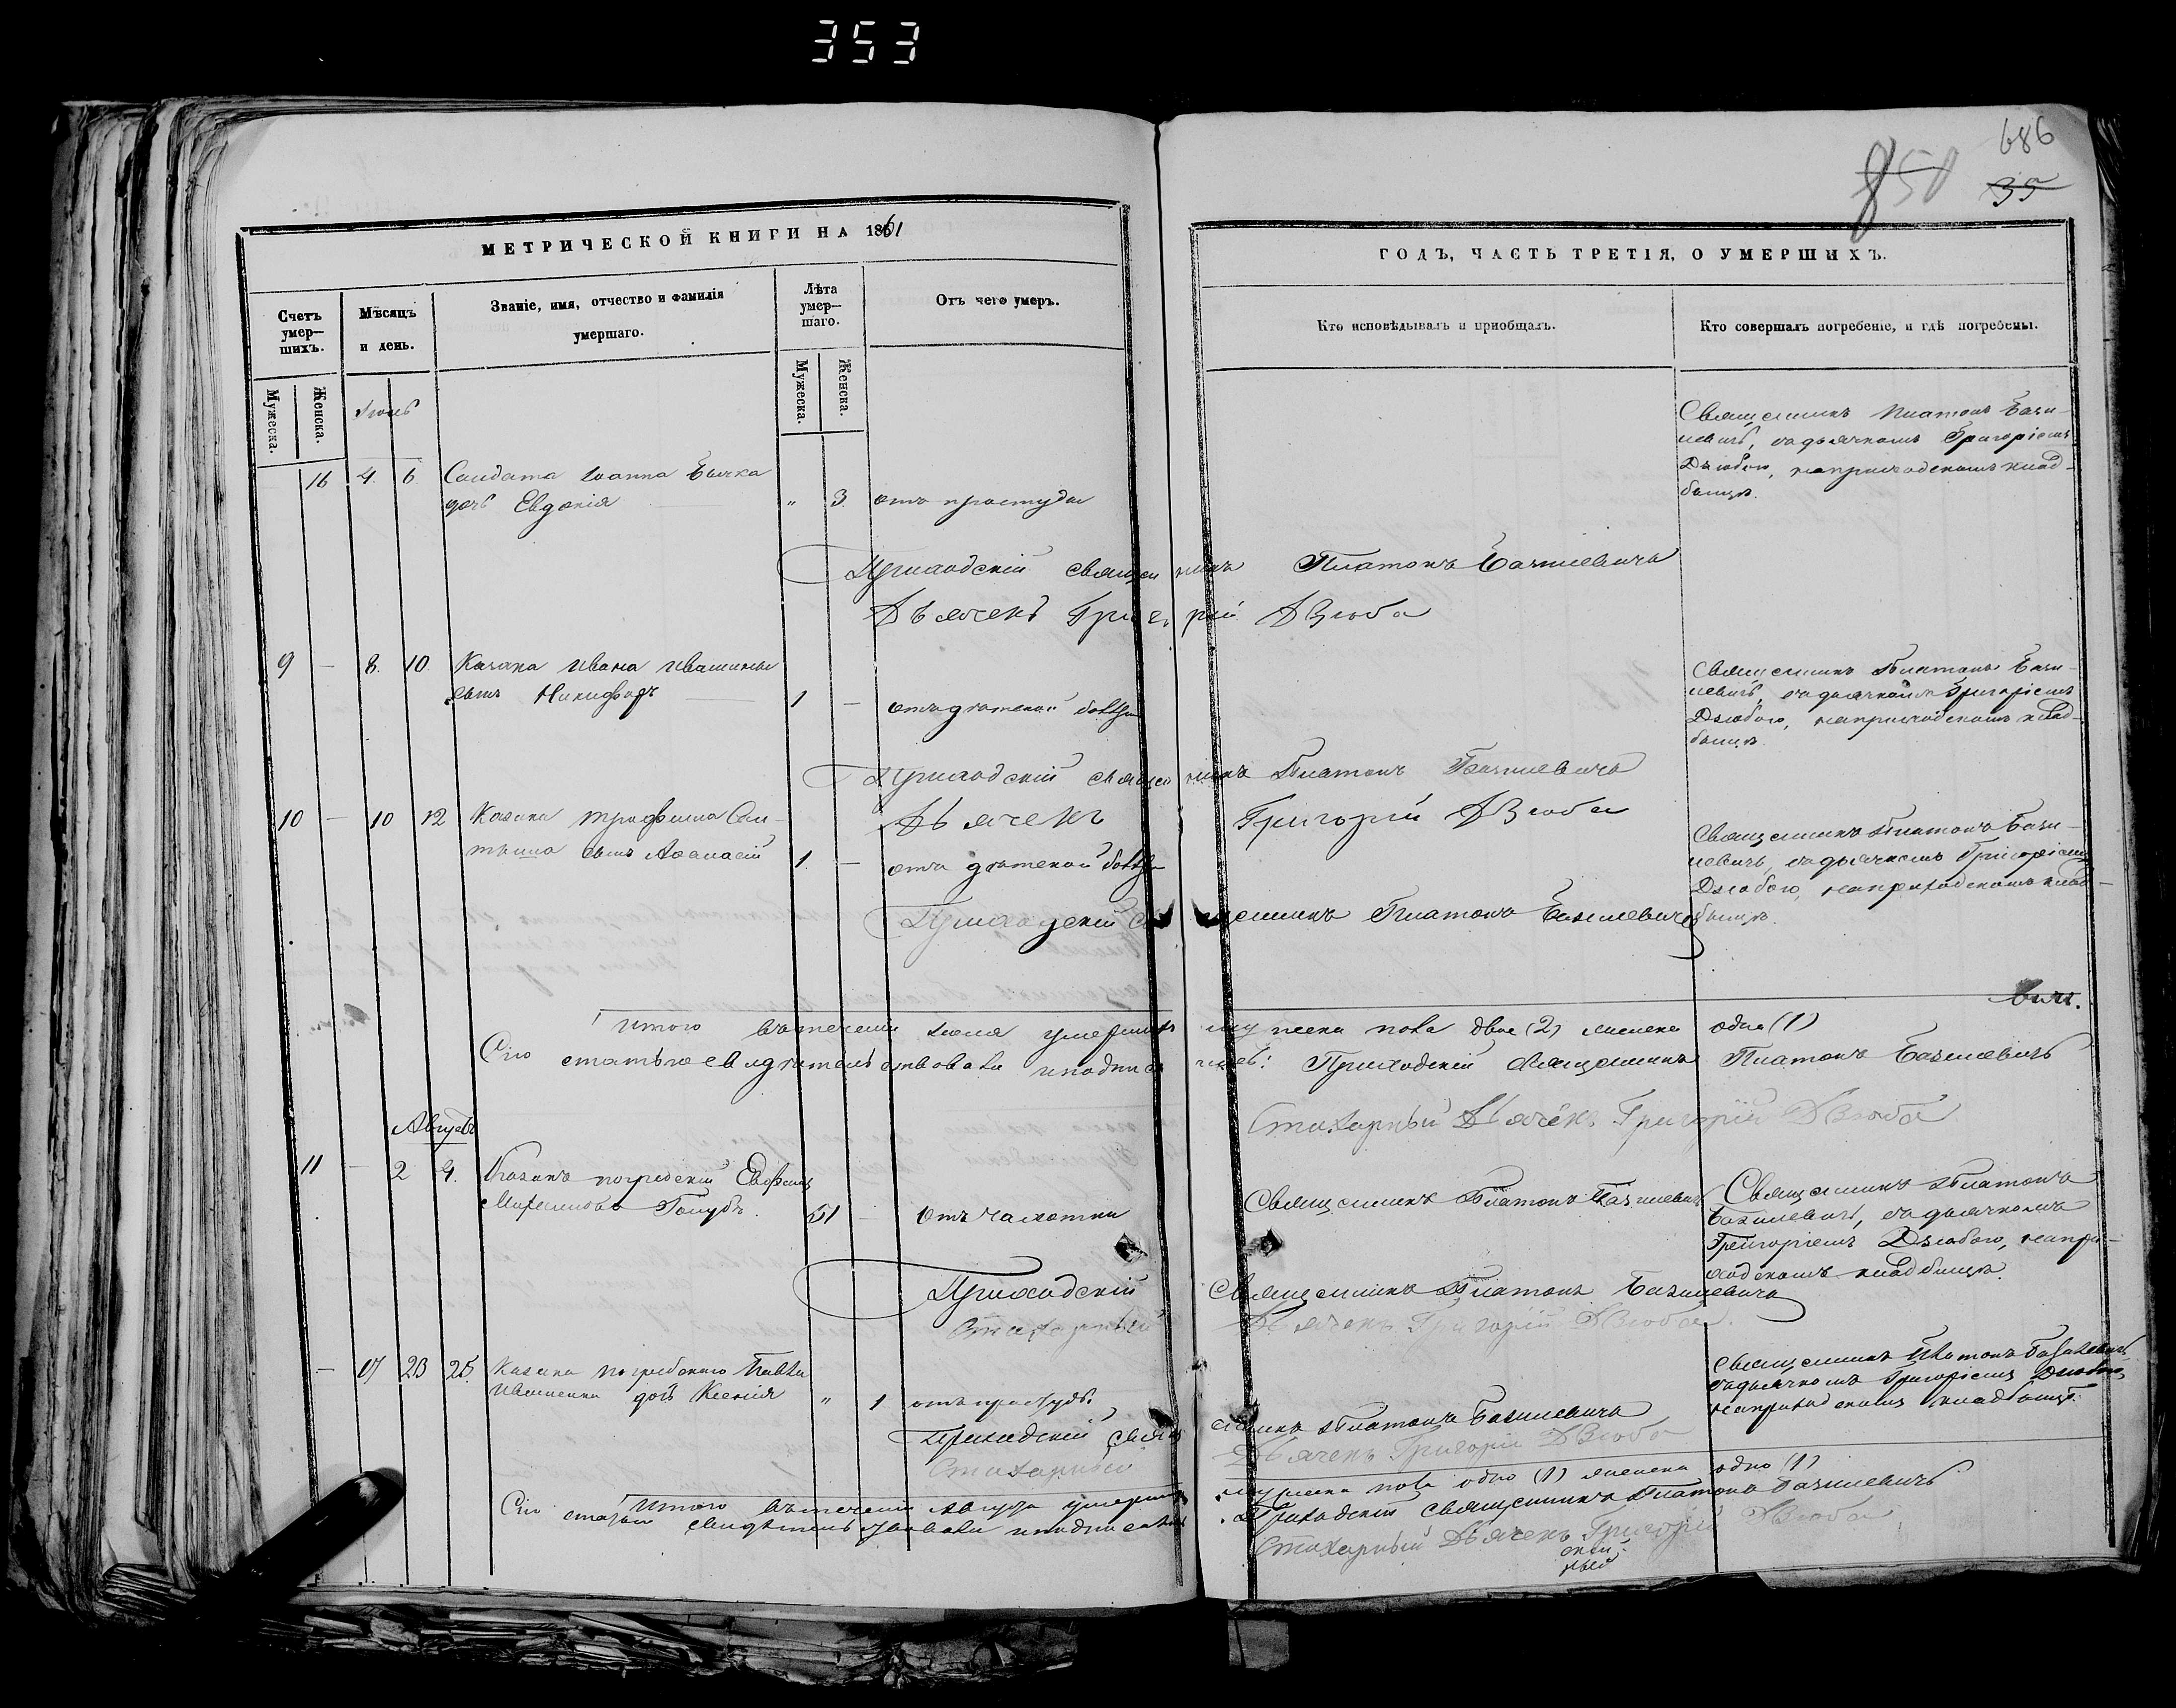 353
686
850
35
МЕТРИЧЕСКОЙ КНИГИ НА 1861
ГОДЪ, ЧАСТЬ ТРЕТІЯ, О УМЕРШИХЪ.
Счетъ умер—шихъ.
Мужеска.
Женска.
Мѣсяцъ и день.
Званіе, имя, отчество и фамилія
умершаго.
Лѣта умер—шаго.
Мужеска.
Женска.
Отъ чего умеръ.
Кто исповѣдывалъ и пріобщалъ.
Кто совершалъ погребеніе, и гдѣ погребены.
16 4. 6 Солдата Іоанна Бычка
дочь Евдокія " 3. отъ простуды
Священникъ Платонъ Бази-
левичъ, съ дьячкомъ Григоріемъ
Дзюбою, на приходскомъ клад-
бищѣ.
Приходскій священникъ Платонъ Базилевичъ
Дьячекъ Григорій Дзюба
9 — 8. 10. Казака Ивана Ивашины
сынъ Никифоръ 1 — отъ дѣтской болѣзни
Священникъ Платонъ Бази-
левичъ, съ дьячкомъ Григоріемъ
Дзюбою, на приходскомъ клад-
бищѣ.
Приходскій священникъ Платонъ Базилевичъ
Дьячекъ Григорій Дзюба
10 — 10 12 Казака
сынъ Аѳанасій 1. — отъ дѣтской болѣзни
Священникъ Платонъ Бази-
левичъ, съ дьячкомъ Григоріемъ
Дзюбою, на приходскомъ клад-
бищѣ.
Приходскій священникъ Платонъ Базилевичъ
вичъ.
Итого въ теченіи іюля умершихъ мужеска пола двое (2) женска одна (1)
Сію статью свидѣтельствовали и подписали: Приходскій священникъ Платонъ Базилевичъ
Стихарный Дьячекъ Григорій Дзюба
Августъ
11 — 2 4. Казакъ Евфимъ
Голубъ. 51 — отъ чахотки
Священникъ Платонъ Базилевичъ
Священникъ Платонъ
Базилевичъ, съ дьячкомъ
Григоріемъ Дзюбою, на при-
ходскомъ кладбищѣ.
Приходскій Священникъ Платонъ Базилевичъ
Стихарный Дьячекъ Григорій Дзюба.
— 17 23 25. Казака Павла
дочь Ксенія " 1 отъ простуды.
Священникъ Платонъ Базилевичъ
съ дьячкомъ Григоріемъ Дзюбою,
на приходскомъ кладбищѣ.
Приходскій священникъ Платонъ Базилевичъ
Стихарный Дьячекъ Григорій Дзюба
Итого въ теченіи августа умершихъ мужеска пола одно (1) женска одно (1)
Сію статью свидѣтельствовали и подписали Приходскій священникъ Платонъ Базилевичъ
Стихарный Дьячекъ Григорій Дзюба